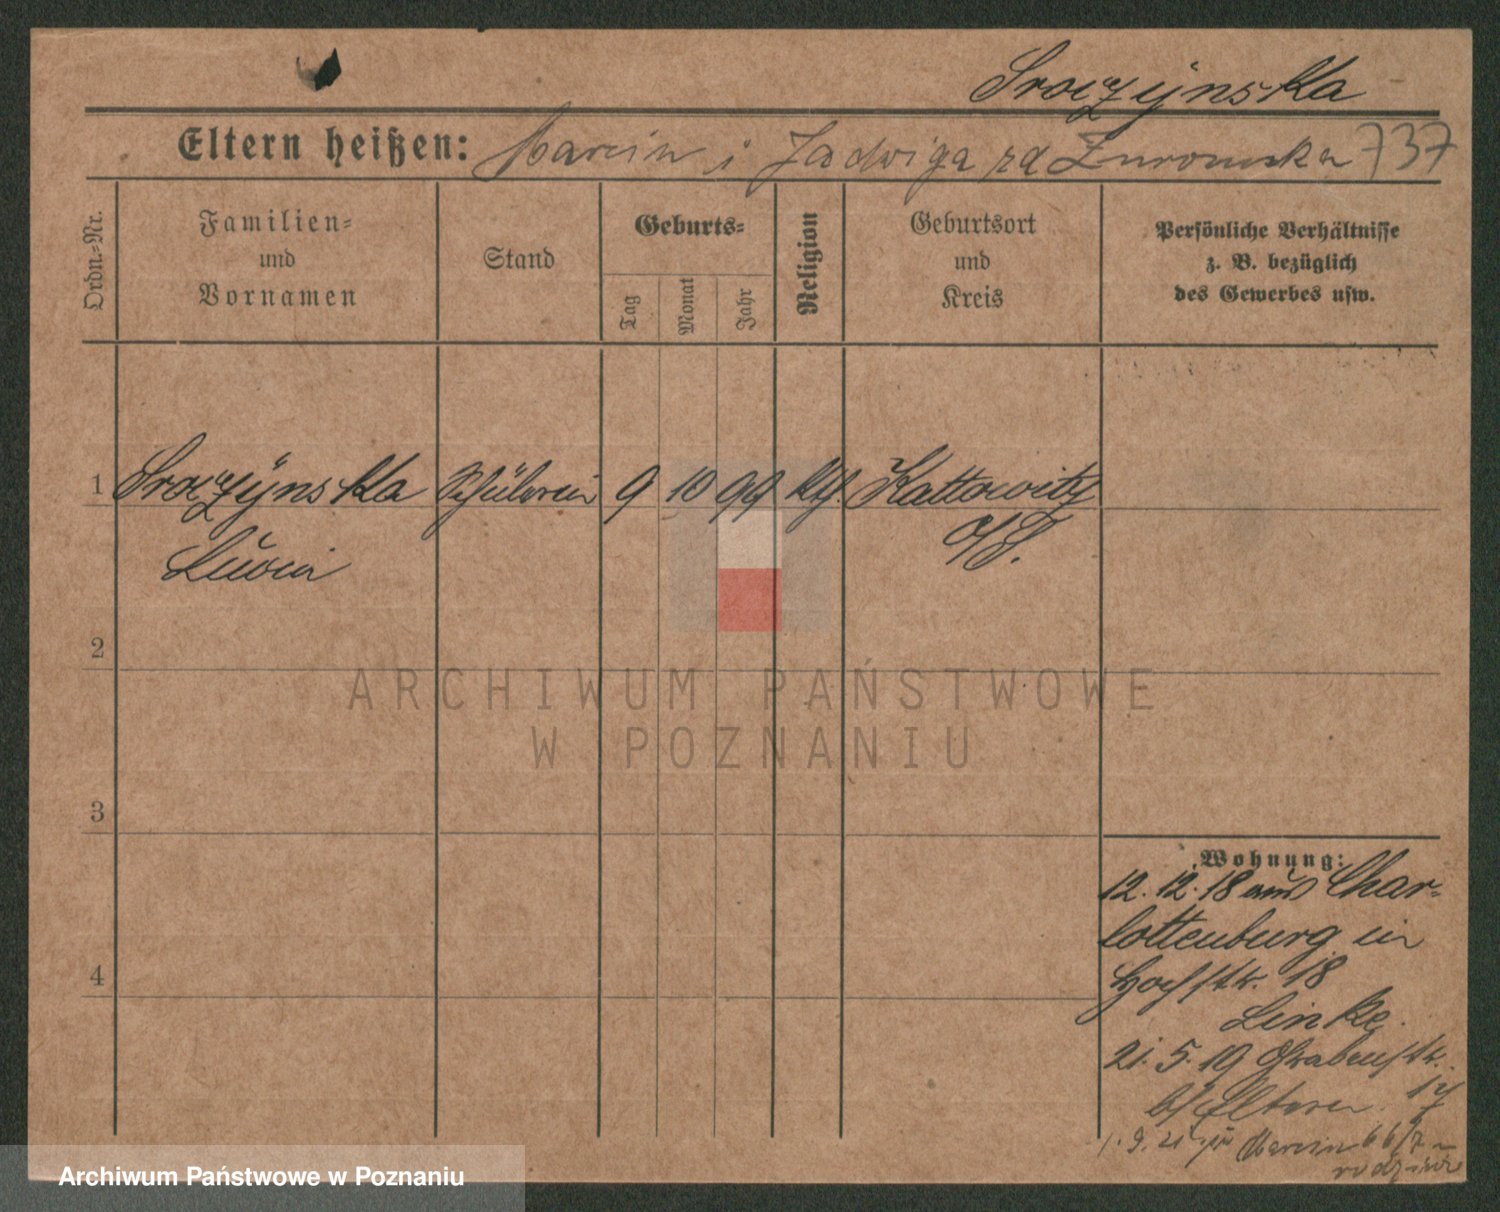 Sroczynska
Eltern heißen: Marcin i Jadwiga zd Żurowska 737
Ordn.-Nr.
Familien-
und
Vornamen
Stand
Geburts-
Tag
Monat
Jahr
Religion
Geburtsort
und
Kreis
Persönliche Verhältnisse
z. B. bezüglich
des Gewerbes usw.
1 Sroczynska Schülerin 9 10 99 kth. Kattowitz
Luvin
O/S.
2
3
4
Wohnung:
12. 12. 18 aus Char-
lottenburg in
Hochstr. 18
Linke.
21. 5. 19 Grabenstr.
b/ Eltern. 17
1. 9. 21 Marcin
rodzinie
ARCHIWUM PAŃSTWOWE
W POZNANIU
Archiwum Państwowe w Poznaniu